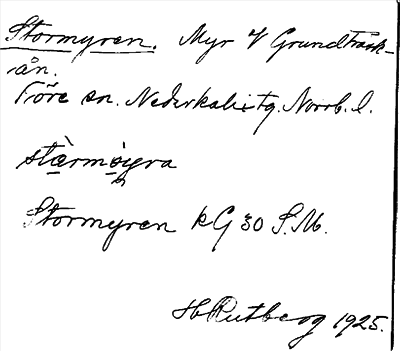 Stormyren. Myr V Grundträsk-
ån.
Töre sn. Nederkalix tg. Norrb. l.
Stormyren kG 30 S.M.
H Rutberg 1925.